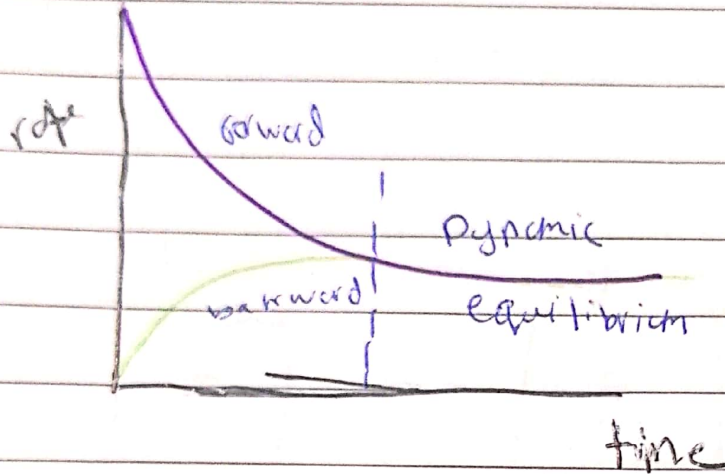 rate
forward
Dynamic
backward
equilibrium
time